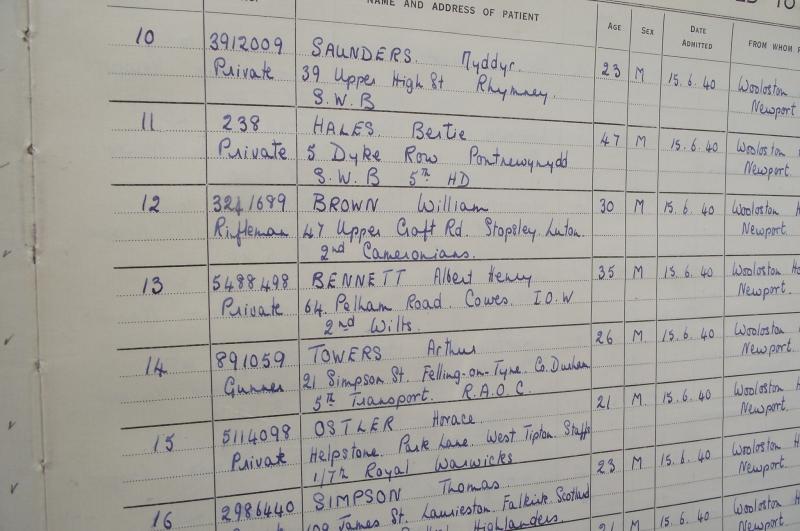 NAME AND ADDRESS OF PATIENT AGE SEX DATE ADMITTED FROM WHOM
10 3912009 SAUNDERS. 23 M 15.6.40 Wooloston
Private 39 Upper High St Rhymney. Newport
S.W.B
11 238 HALES. Bertie 47 M 15.6.40 Wooloston
Private 5 Dyke Row Pontnewynydd Newport.
S.W.B 5th HD
12 1689 BROWN William 30 M 15.6.40 Wooloston H
Rifleman 47 Upper Craft Rd. Stopsley Luton. Newport.
2nd Cameronians.
13 5488498 BENNETT Albert Henry 35 M 15.6.40 Wooloston Ho
Private 64. Pelham Road. Cowes. I.O.W Newport.
2nd Wilts.
14 891059 TOWERS Arthur 26 M 15.6.40 Wooloston H
Gunner 21 Simpson St. Felling-on-Tyne. Co. Durham Newport.
5th Transport. R.A.O.C.
15 5114098 OSTLER Horace. 21 M. 15.6.40 Wooloston H
Private Helpstone. Park Lane. West Tipton. Staffs Newport.
1/7th Royal Warwicks
16 2986440 SIMPSON Thomas. 23 M 15.6.40 Wooloston
James St. Laurieston. Falkirk Scotland Newport.
Highlanders. 21 M 15.6.40 Wooloston